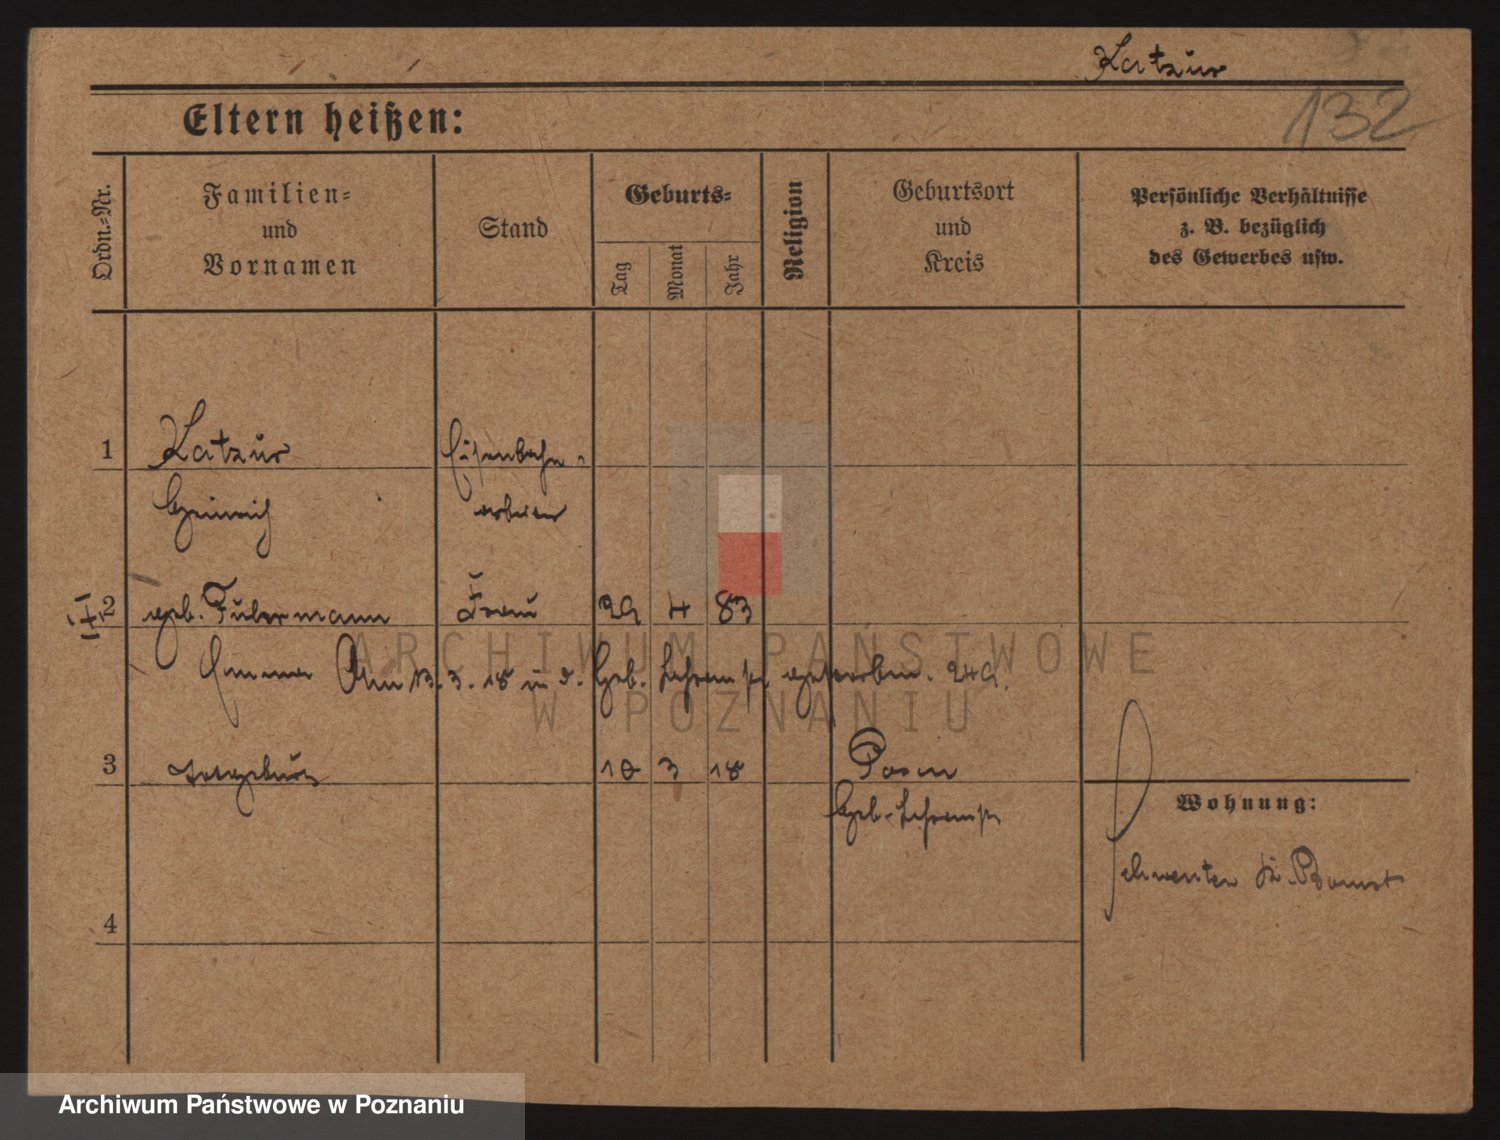 Katzur
132
Eltern heißen:
Ordn.-Nr.
Familien-
und
Vornamen
Stand
Geburts-
Tag
Monat
Jahr
Religion
Geburtsort
und
Kreis
Persönliche Verhältnisse
z. B. bezüglich
des Gewerbes usw.
1 Katzur Eisenbahn-
Heinrich arbeiter
2 geb. Fuhrmann Frau 29 4 83
Emma Am 13. 3. 18 in d. Heb. Lehranst. gestorben. 249.
3 totgeburt 10 3 18 Posen
Heb. Lehranst
Wohnung:
Schwenten Kr. Bomst
4
ARCHIWUM PAŃSTWOWE
W POZNANIU
Archiwum Państwowe w Poznaniu